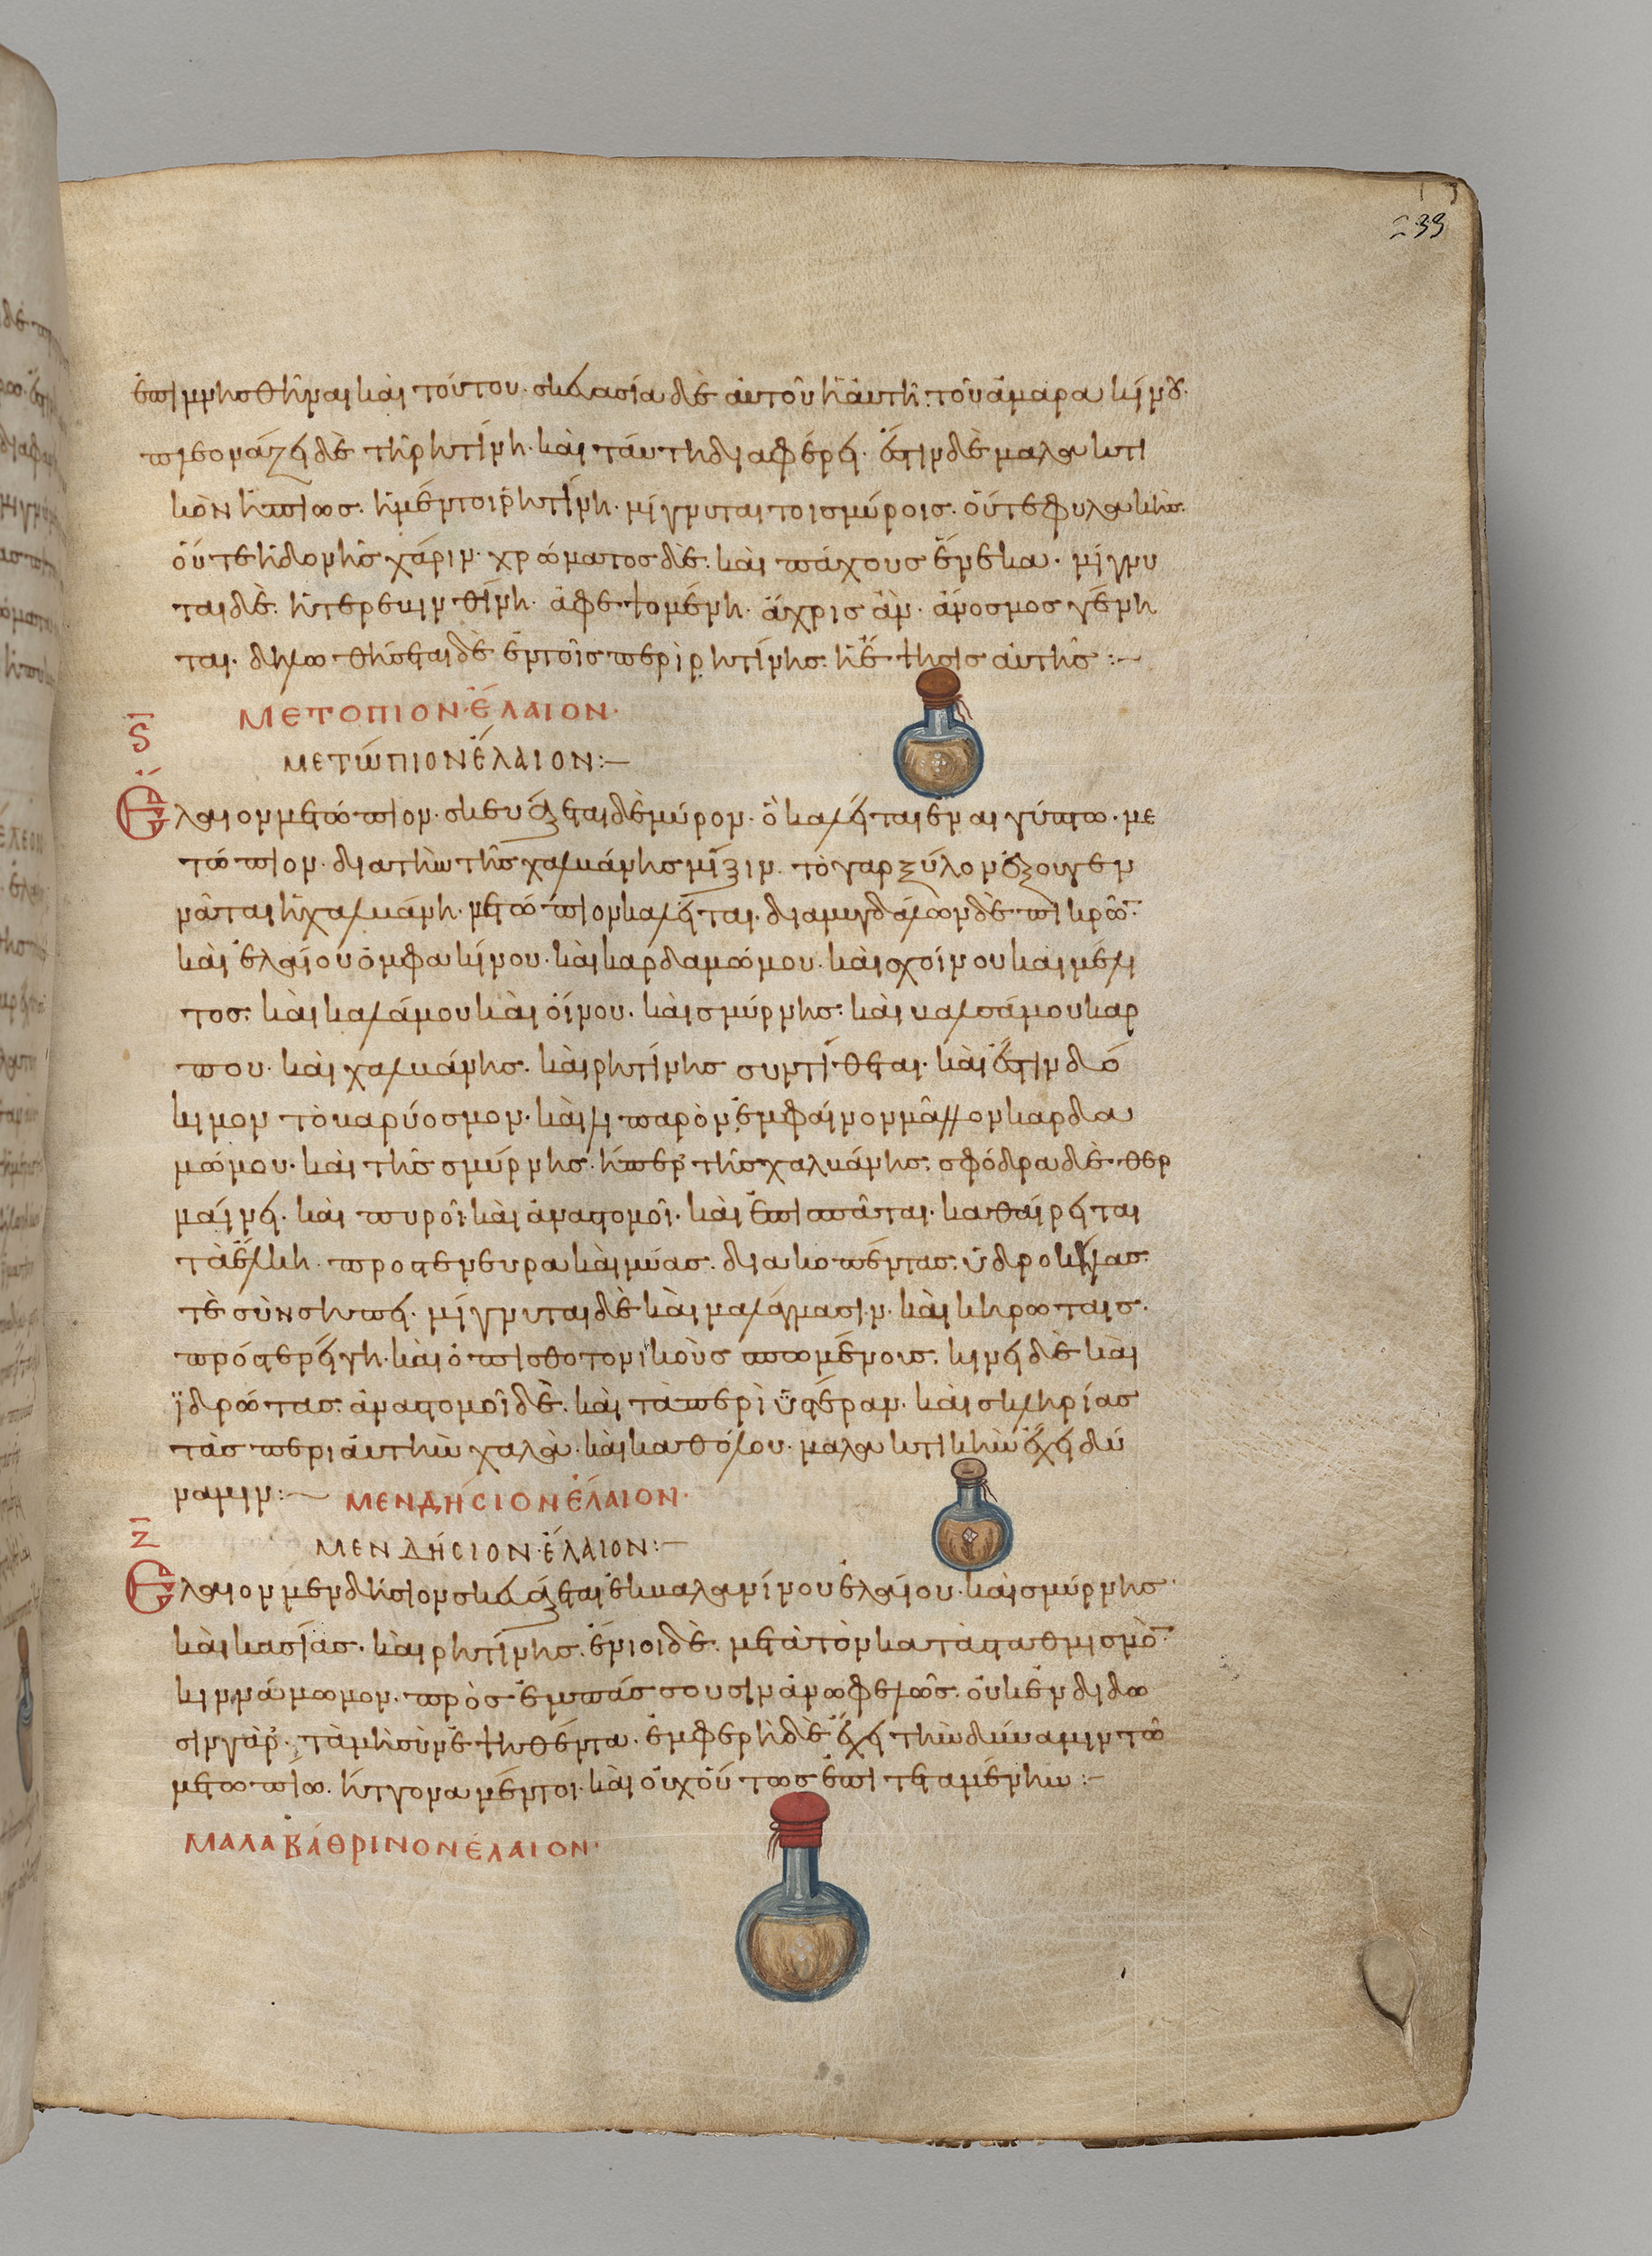 239
ἐπιμνησθῆναι καὶ τούτου· σκευασία δὲ αὐτοῦ ἡ αὐτὴ· τοῦ ἀμαρακίνου·
πλεονάζει δὲ τῆ ῥητίνη· καὶ ταύτη διαφέρει· ἔστιν δὲ μαλακτι
κὸν ἠπίως· ἡ μέντοι ῥητίνη· μίγνυται τοῖς μύροις· οὔτε φυλακῆς·
οὔτε ἡδονῆς χάριν· χρώματος δὲ· καὶ πάχους ἕνεκα· μίγνυ
ται δὲ· ἡ τερεβινθίνη· ἀφεψομένη· ἄχρις ἂν· ἄνοσμος γένη
ται· δηλωθήσεται δὲ ἐν τοῖς περὶ ῥητίνης· ἡ ἕψησις αὐτῆς :~
Ϛ
ΜΕΤΟΠΙΟΝ ἘΛΑΙΟΝ·
ΜΕΤΏΠΙΟΝ ἘΛΑΙΟΝ:—
Ἔλαιον μετώπιον· σκευάζεται δὲ μύρον· ὃ καλεῖται ἐν αἰγύπτω· με
τώπιον· διὰ τὴν τῆς χαλβάνης μίξιν· τὸ γὰρ ξύλον ὅξου γεν
νᾶται ἡ χαλβάνη· μετώπιον καλεῖται· δι ἀμυγδάλων δὲ πικρῶν·
καὶ ἐλαίου ὀμφακίνου· καὶ καρδαμώμου· καὶ σχοίνου καὶ μέλι
τος· καὶ καλάμου καὶ οἴνου· καὶ σμύρνης· καὶ βαλσάμου καρ
που· καὶ χαλβάνης· καὶ ῥητίνης συντίθεται· καὶ ἔστιν δό
κιμον τὸ βαρύοσμον· καὶ λιπαρὸν ἐμφαίνον μᾶλλον καρδα
μώμου· καὶ τῆς σμύρνης· ἤπερ τῆς χαλβάνης· σφόδρα δὲ θερ
μαίνει· καὶ πυροῖ· καὶ ἀναστομοῖ· καὶ ἐπισπᾶται· καθαίρει ται
τὰ ἕλκη· προς τε νευρα καὶ μύας· διακοπέντας· ὑδροκήλας
τὲ σὺν σηπτεῖ· μίγνυται δὲ καὶ μαλάγμασιν· καὶ κηρωταις·
πρός τε ῥίγη· καὶ ὀπισθοτονικοὺς σπωμένους· κινεῖ δὲ καὶ
ἱδρώτας· ἀναστομοῖ δὲ· καὶ τὰ περὶ ὑστέραν· καὶ σκληρίας
τὰς περὶ αὐτὴν χαλᾶ· καὶ καθόλου· μαλακτικὴν ἔχει δύ
ναμιν:~ ΜΕΝΔΉΣΙΟΝ ἘΛΑΙΟΝ·
Ζ
ΜΕΝΔΉΣΙΟΝ ἘΛΑΙΟΝ:—
Ἔλαιον μενδήσιον σκευάζεται ἐκ βαλανίνου ἐλαίου· καὶ σμύρνης·
καὶ κασίας· καὶ ῥητίνης· ἔνιοι δὲ· μετὰ τὸν κατὰ σταθμισμὸν·
κιννάμωμον· πρὸς ἐμπάσσουσιν ἀνωφελῶς· οὐκ ἐνδιδω
σιν γὰρ· τὰ μὴ συνεψηθέντα· ἐμφερῆ δὲ ἔχει τὴν δύναμιν τῶ
μετωπίω· ἥττονα μέντοι· καὶ οὐχ οὕτως ἐπιτεταμένην :~
ΜΑΛΑΒΆΘΡΙΝΟΝ ἘΛΑΙΟΝ·